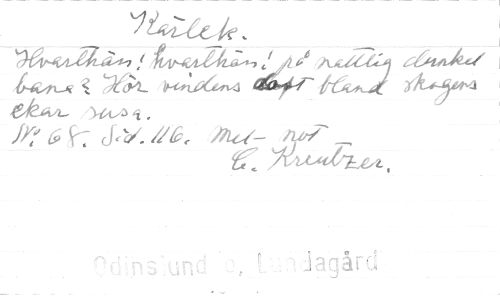 Kärlek.
Hvarthän! hvarthän! på nattlig dunkel
bana? Hör vindens bland skogens
ekar susa.
No. 68. Sid. 116. Mel- not
C. Kreutzer.
Odinslund o, Lundagård